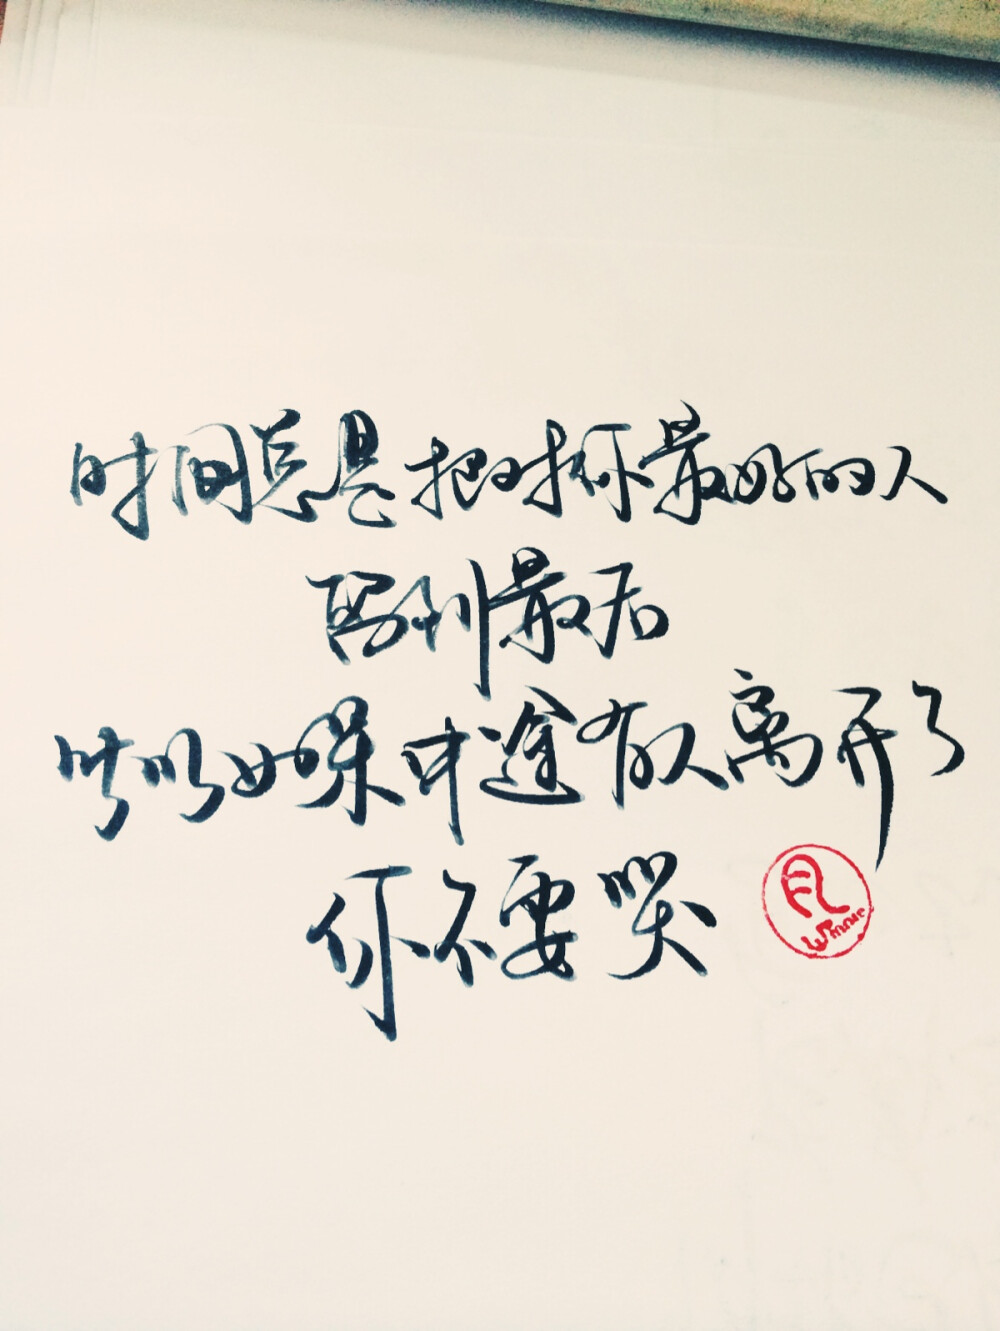 时间总是把对你最好的人
留到最后
所以如果中途有人离开了
你不要哭
Winnie